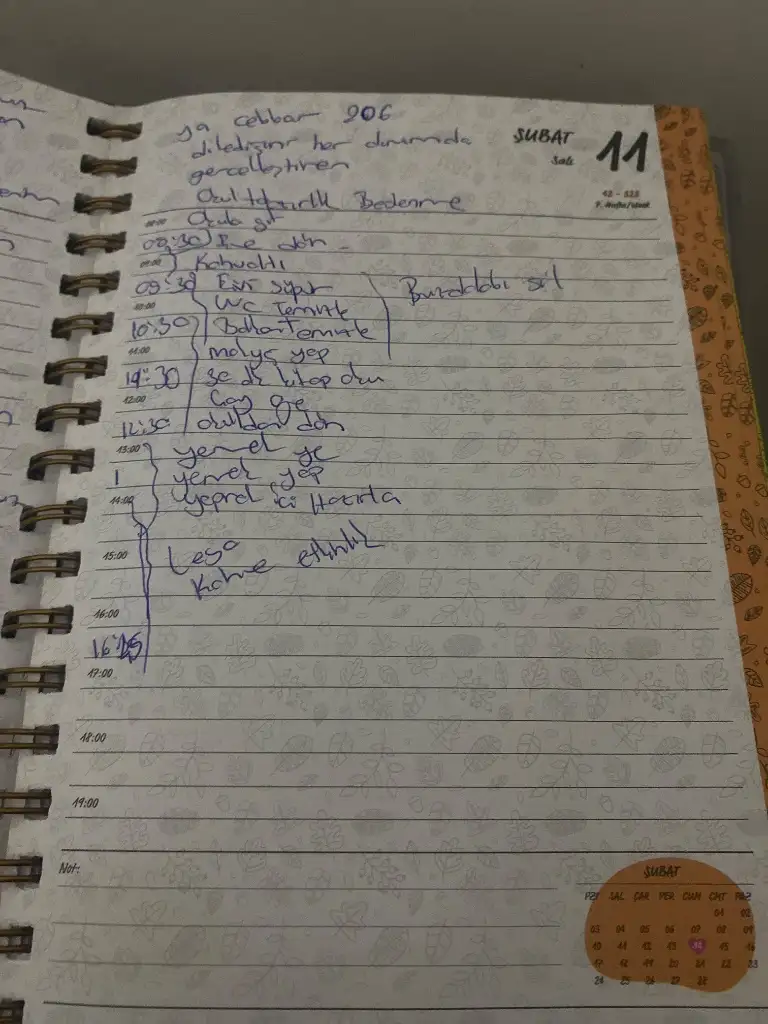 ya cebbar 206
dilediğini her durumda
gerçekleştiren
ŞUBAT
Salı
11
42 - 323
7. Hafta/Week
Okul hazırlık Beslenme
08:00 Okula git
08:30 Eve dön
09:00 Kahvaltı
09:30 Evi süpür
Buzdolabı sil
10:00 WC Temizle
10:30 Temizle
11:00 yap
11:30 30 dk kitap oku
12:00 Çay
12:30 okuldan dön
13:00 yemek ye
1 yemek yap
14:00 Yaprak içi Hazırla
15:00 Lego
Kahve etkinlik
16:00
16:45
17:00
18:00
19:00
Not:
ŞUBAT
PZT SAL ÇAR PER CUM CMT PAZ
01 02
03 04 05 06 07 08 09
10 11 12 13 14 15 16
17 18 19 20 21 22 23
24 25 26 27 28